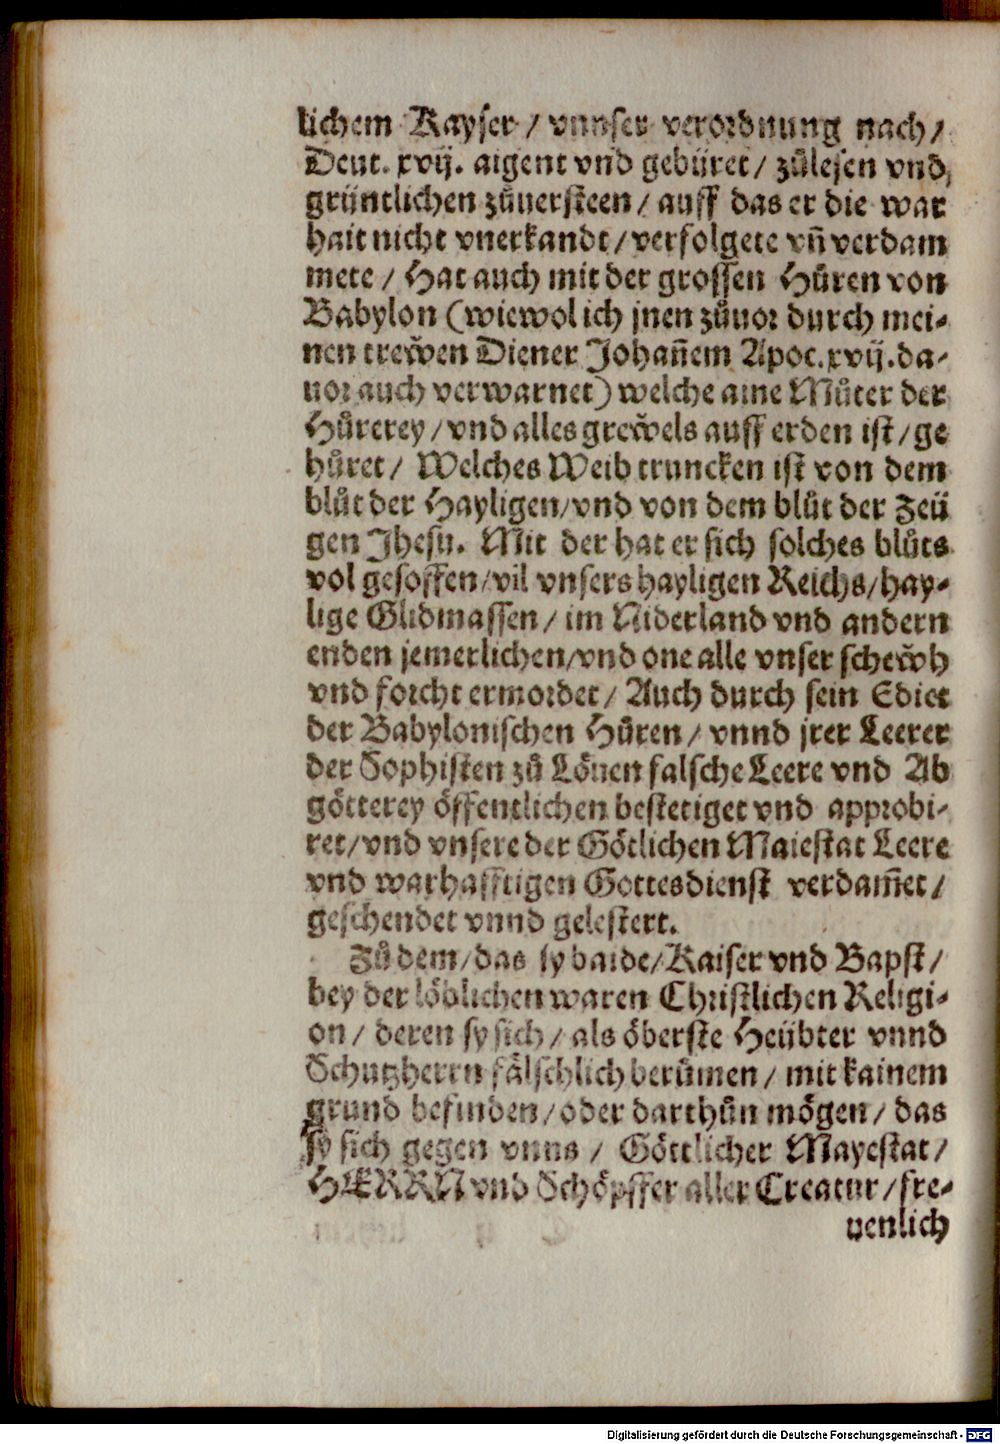 lichem Kayser / vnnser verordnung nach /
Deut. xvij. aigent vnd gebüret / zůlesen vnd,
grüntlichen zůuersteen / auff das er die war
hait nicht vnerkandt / verfolgete vñ verdam
mete / Hat auch mit der grossen Hůren von
Babylon (wiewol ich jnen zůuor durch mei-
nen trew̌en Diener Johañem Apoc. xvij. da-
uor auch verwarnet) welche aine Můter der
Hůrerey / vnd alles grew̌els auff erden ist / ge
hůret / Welches Weib truncken ist von dem
blůt der Hayligen / vnd von dem blůt der Zeü
gen Jhesu. Mit der hat er sich solches blůts
vol gesoffen / vil vnsers hayligen Reichs / hay-
lige Glidmassen / im Niderland vnd andern
enden jemerlichen / vnd one alle vnser schew̌h
vnd forcht ermordet / Auch durch sein Edict
der Babylonischen Hůren / vnnd jrer Leerer
der Sophisten zů Löuen falsche Leere vnd Ab
götterey öffentlichen bestetiget vnd approbi-
ret / vnd vnsere der Götlichen Maiestat Leere
vnd warhafftigen Gottesdienst verdam̃et /
geschendet vnnd gelestert.
Zů dem / das sy baide / Kaiser vnd Bapst /
bey der löblichen waren Christlichen Religi-
on / deren sy sich / als öberste Heübter vnnd
Schutzherrn fälschlich berůmen / mit kainem
grund befinden / oder darthůn mögen / das
sy sich gegen vnns / Göttlicher Mayestat /
HERRN vnd Schöpffer aller Creatur / fre-
uenlich
Digitalisierung gefördert durch die Deutsche Forschungsgemeinschaft - DFG